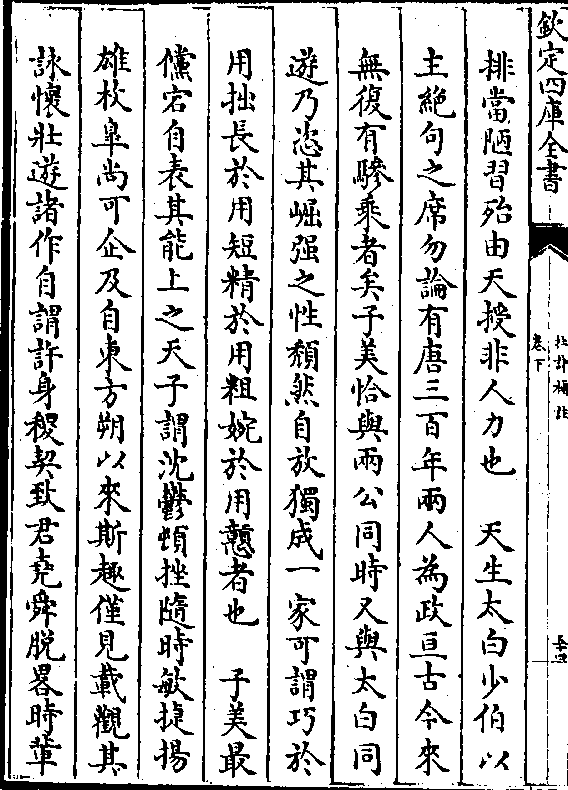 欽定四庫全書
卷下
排當陋習殆由天授非人力也　天生太白少伯以
主絶句之席勿論有唐三百年兩人為政亘古今來
無復有驂乘者矣子美恰與兩公同時又與太白同
遊乃恣其崛强之性頽然自放獨成一家可謂巧於
用拙長於用短精於用粗婉於用戇者也　子美最
儻宕自表其能上之天子謂沈鬱頓挫隨時敏捷揚
雄枚臯尚可企及自東方朔以來斯趣僅見載觀其
詠懷壯遊諸作自謂許身稷契致君堯舜脱畧時輩